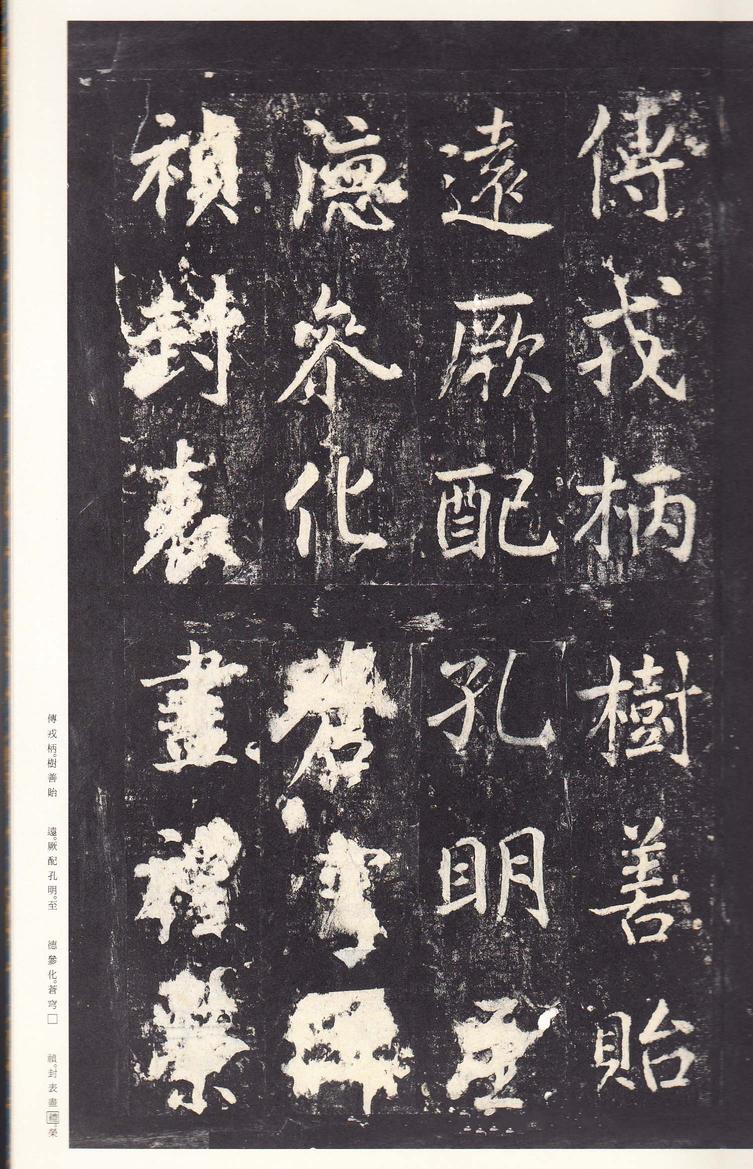 傅戎柄樹善貽
遠厥配孔明至
德參化蒼穹
禎封表盡禮榮
傅戎柄。樹善貽　遠。厥配孔明。至　德參化。蒼穹□　禎。封表盡禮榮